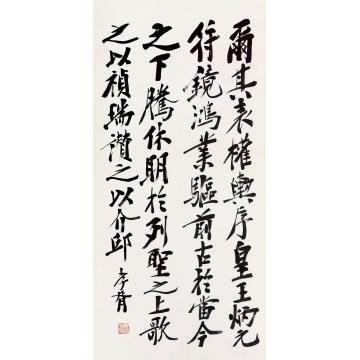 爾其表權輿序皇王炳元
符鏡鴻業驅前古於當今
之下騰休朋於列聖之上歌
之以禎瑞讚之以介邱
孝胥